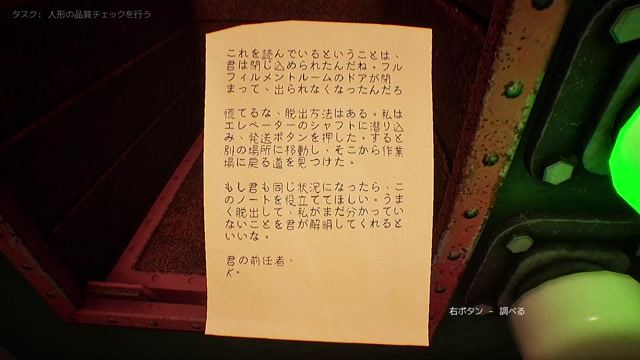 タスク: 人形の品質チェックを行う
これを読んでいるということは、
君は閉じ込められたんだね。フル
フィルメントルームのドアが閉
まって、出られなくなったんだろ
慌てるな、脱出方法はある。私は
エレベーターのシャフトに潜り込
み、発送ボタンを押した。すると
別の場所に移動し、そこから作業
場に戻る道を見つけた。
もし君も同じ状況になったら、こ
のノートを役立ててほしい。うま
く脱出して、私がまだ分かってい
ないことを君が解明してくれると
いいな。
君の前任者、
K。
右ボタン - 調べる